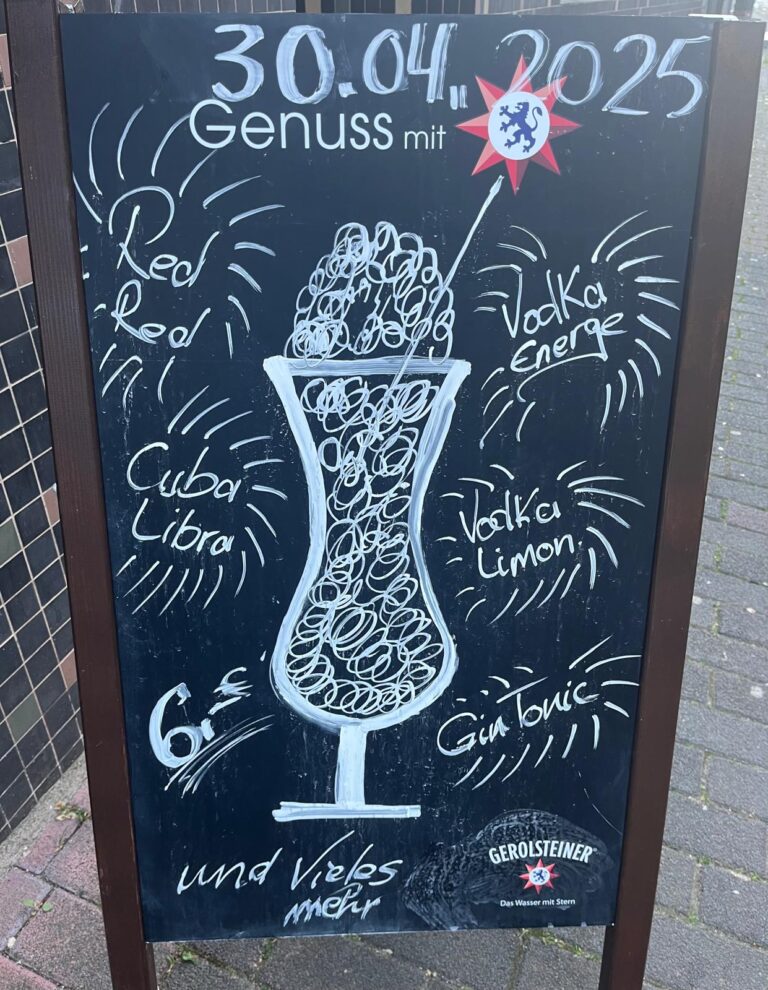 30.04. 2025
Genuss mit
Red
Red
Vodka
Energe
Cuba
Libra
Vodka
Limon
6.-€
Gin Tonic
und Vieles
mehr
GEROLSTEINER®
Das Wasser mit Stern